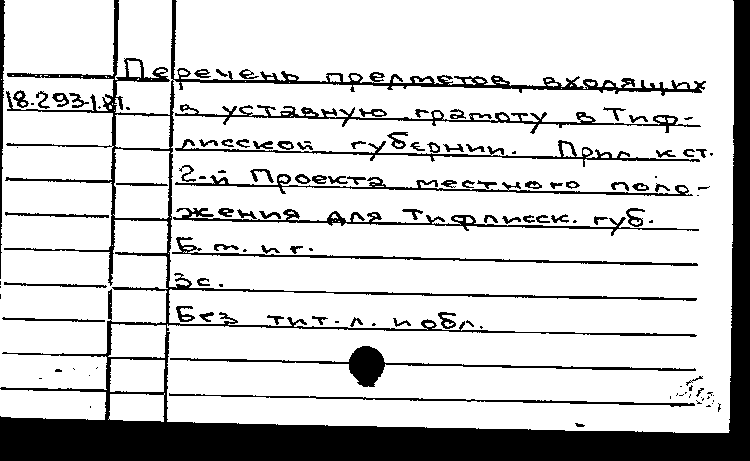 Перечень предметов, входящих
18.293.1.81.
в уставную грамоту, в Тиф-
лисской губернии. Прил. к ст.
2-й Проекта местного поло-
жения для Тифлисск. губ.
Б. м. и г.
3с.
Без тит. л. и обл.